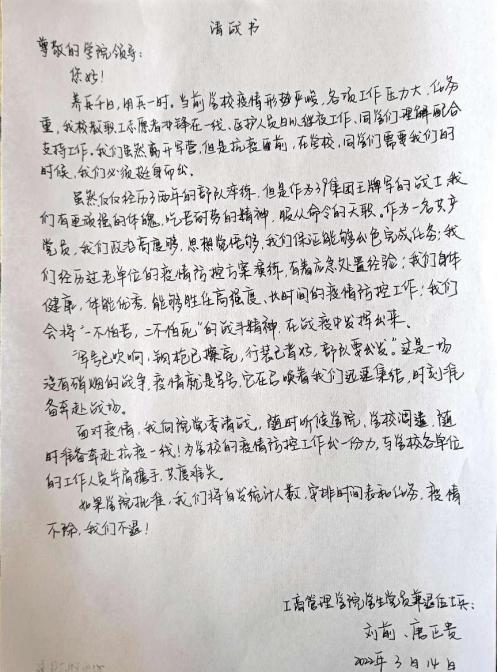 请战书
尊敬的学院领导：
您好！
养兵千日，用兵一时。当前学校疫情形势严峻，各项工作压力大、任务
重，我校教职工志愿者冲锋在一线，医护人员日以继夜工作，同学们理解配合
支持工作。我们虽然离开军营，但是抗疫当前，在学校、同学们需要我们的
时候，我们必须挺身而出。
虽然仅仅经历了两年的部队淬练，但是作为39集团王牌军的战士，我
们有更顽强的体魄，吃苦耐劳的精神，服从命令的天职。作为一名共产
党员，我们政治高度够，思想觉悟够，我们保证能够出色完成任务；我
们经历过老单位的疫情防控方案演练，有着应急处置经验；我们身体
健康，体能优秀，能够胜任高强度、长时间的疫情防控工作；我们
会将“一不怕苦，二不怕死”的战斗精神，在战疫中发挥出来。
“军号已吹响，钢枪已擦亮，行装已背好，部队要出发”。这是一场
没有硝烟的战争，疫情就是军号，它在召唤着我们迅速集结，时刻准
备奔赴战场。
面对疫情，我向院党委请战，随时听候学院、学校调遣，随
时准备奔赴抗疫一线！为学校的疫情防控工作出一份力，与学校各单位
的工作人员并肩携手，共度难关。
如果学院批准，我们将自发统计人数，安排时间表和任务，疫情
不除，我们不退！
工商管理学院学生党员兼退伍士兵：
刘前、唐正贵
2022年3月14日